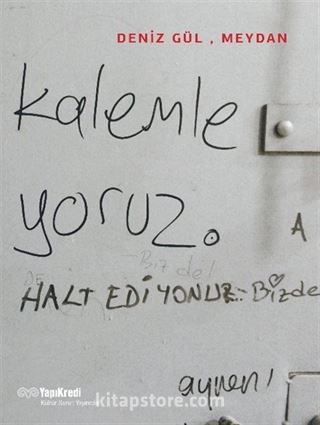 DENİZ GÜL , MEYDAN
kalemle
yoruz.
A
-Biz de!
DE
HALT EDİYONUZ-Bizde
YapıKredi
Kültür Sanat Yayıncılık
aynen!
kitapstore.com